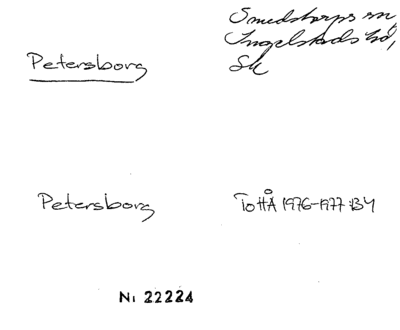 Petersborg
Smedstorps sn,
Ingelstads hd,
Sk
Petersborg
ToHÅ 1976-1977 :BY
Ni 22224